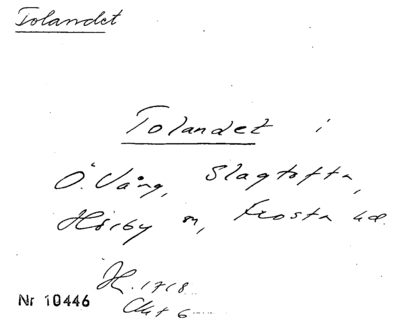 Tolandet
Tolandet i
Ö. Vång, Slagtofta,
Hörby sn, Frosta hd.
H. 1718
Akt 6
Nr 10446